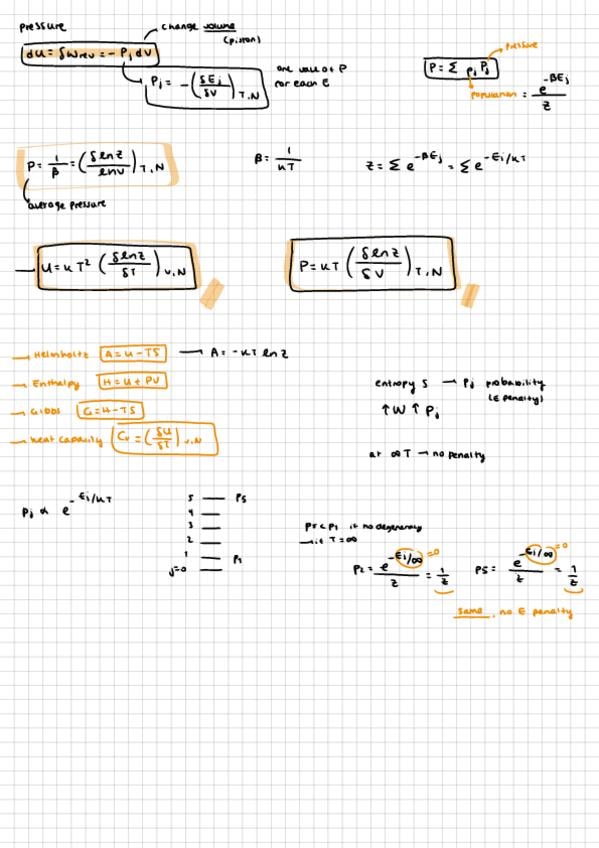 pressure
change volume
(piston)
dU = δwrev = - Pj dV
Pj = - (δEj / δV) T,N
one value of P
for each E
P = Σ pj Pj
pressure
population = e^-βEj / z
P = 1/β = (δlnz / lnv) T,N
average pressure
β = 1 / kT
z = Σ e^-βEj = Σ e^-Ei/kT
U = kT² (δlnz / δT) V,N
P = kT (δlnz / δV) T,N
→ Helmholtz A = U - TS → A = - kT ln z
→ Enthalpy H = U + PV
→ Gibbs G = H - TS
→ heat capacity Cv = (δU / δT) V,N
entropy S → Pj probability
(E penalty)
↑W ↑Pj
at ∞ T → no penalty
Pj ∝ e^-Ei/kT
5 P5
4
3
2
1 P1
j=0
P5 < P1 if no degeneracy
→ if T = ∞
P2 = e^-Ei/∞ / z = 1/z =0
P5 = e^-Ei/∞ / z = 1/z =0
same, no E penalty